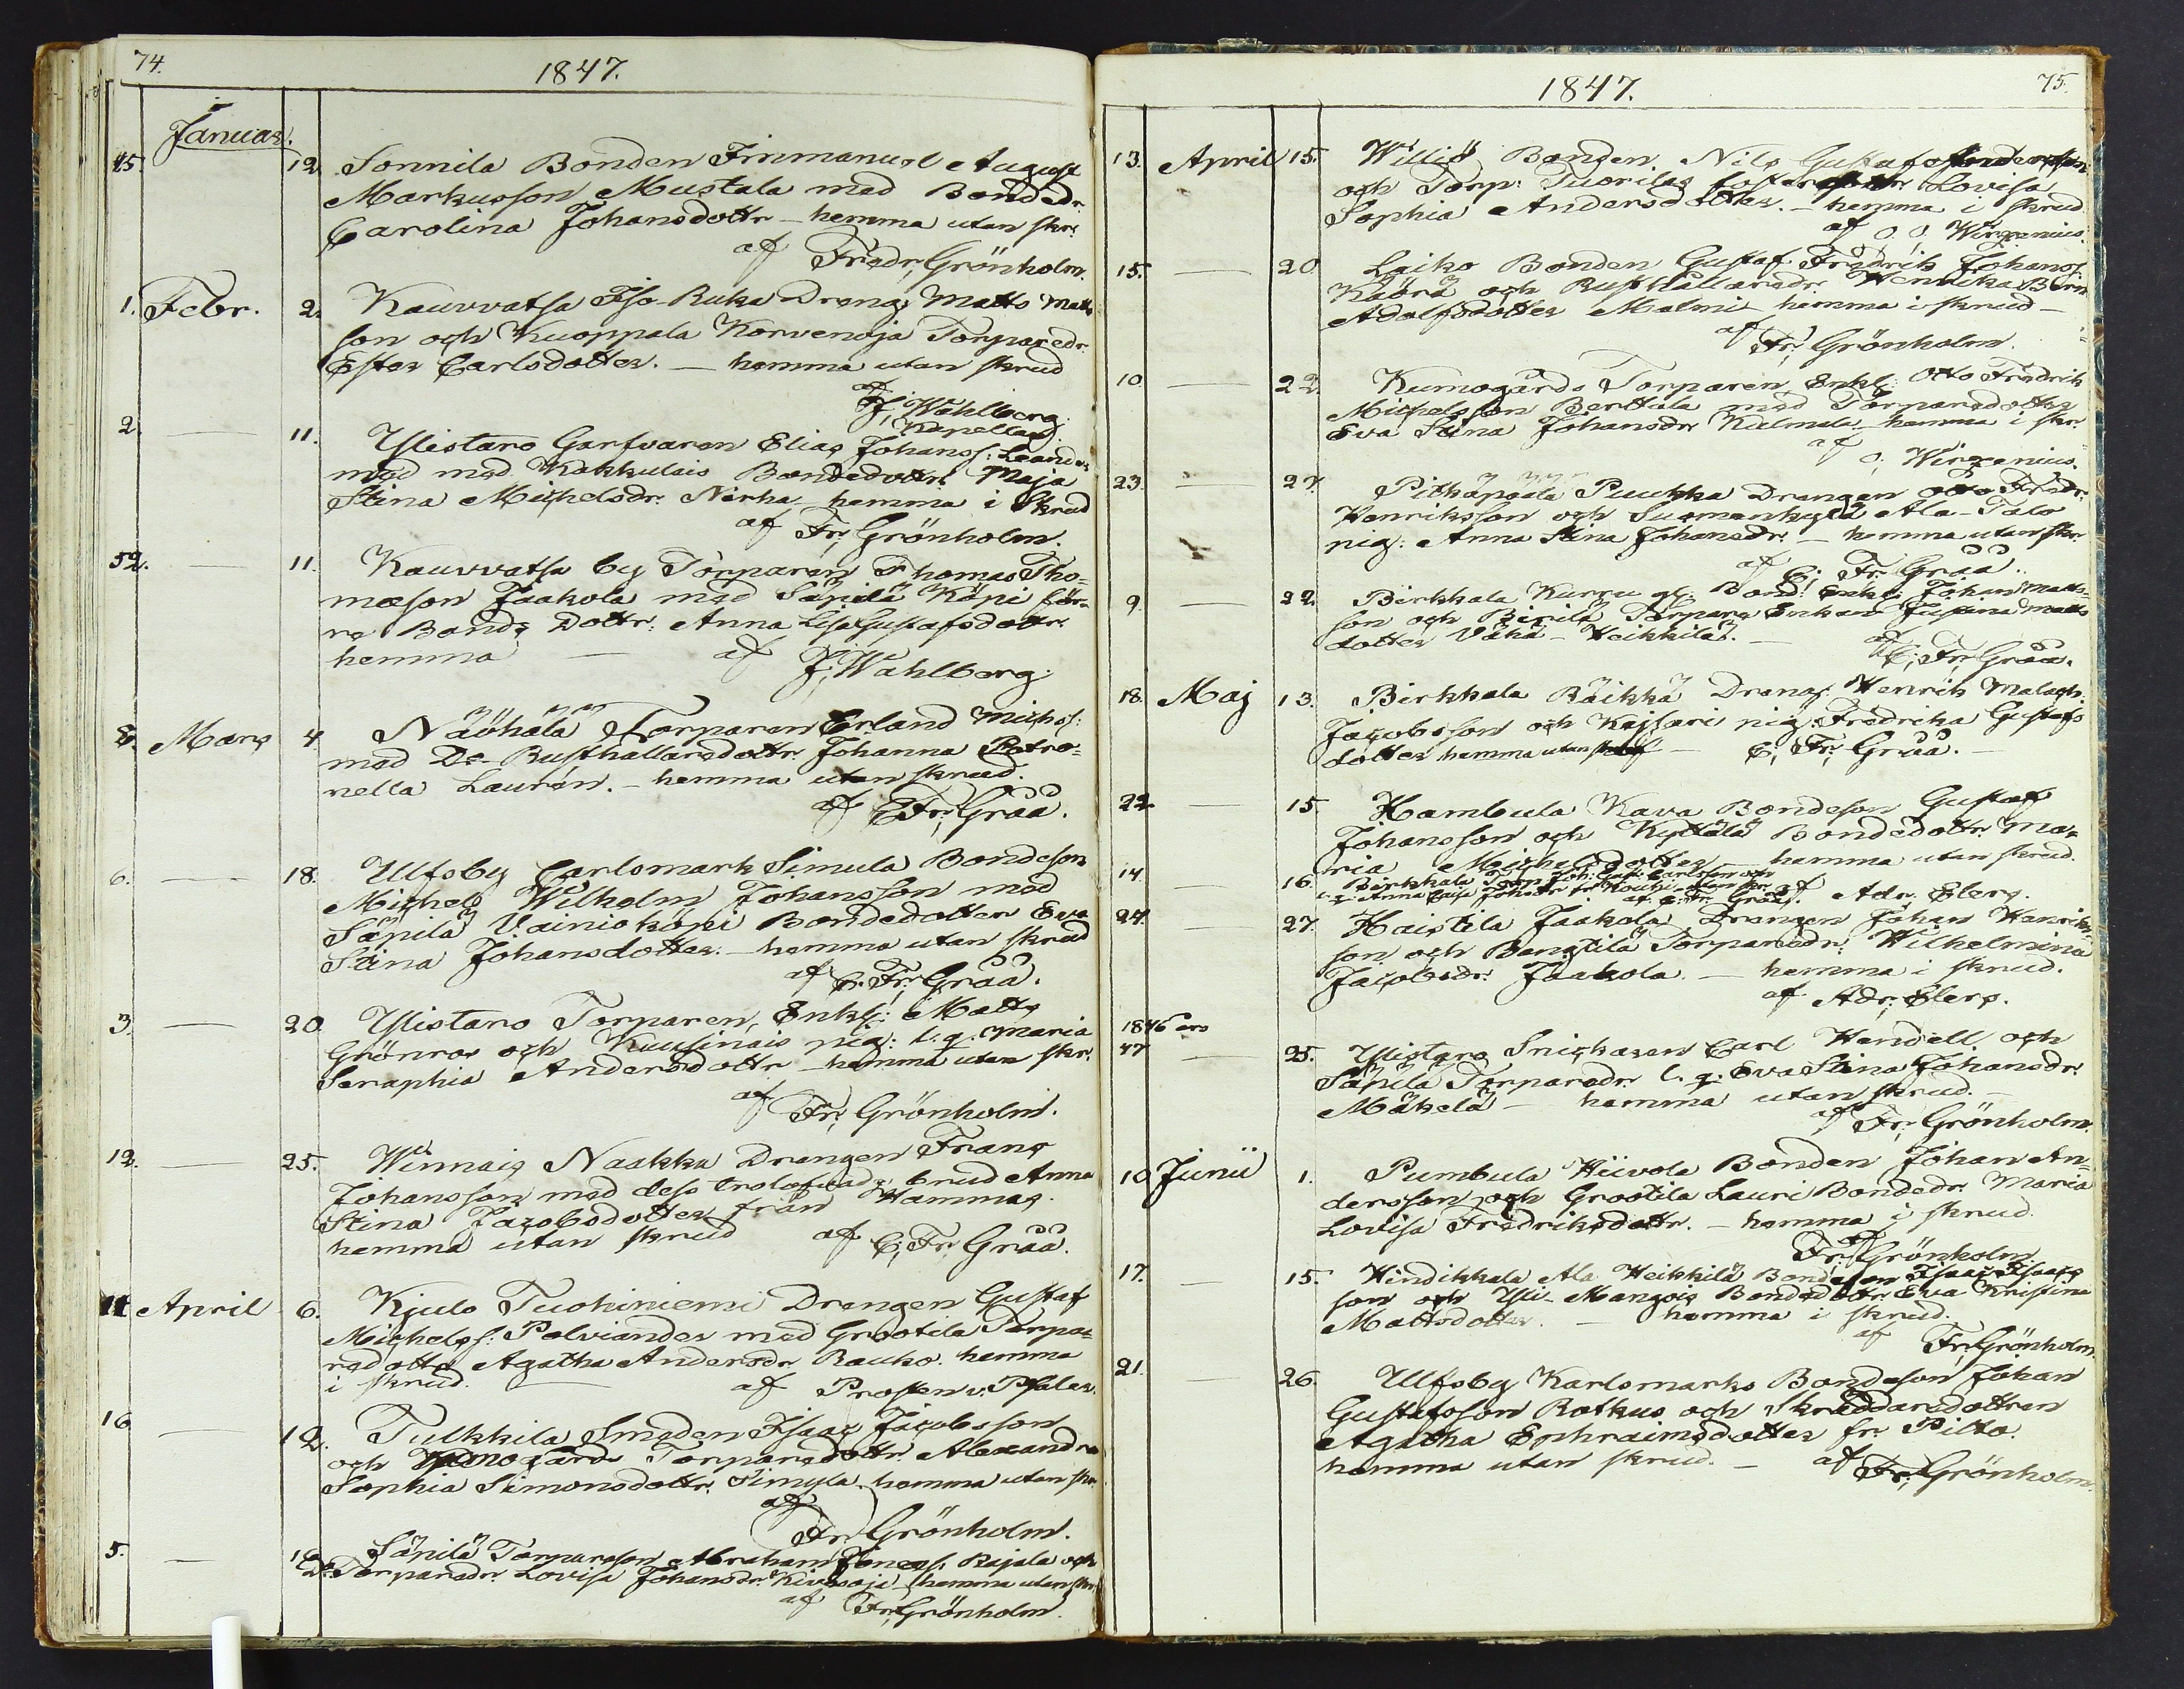 74.
1847.
Januar.
45. 12. Sonnila Bonden Immanuel August
Markusson Mustala med Bondedr.
Carolina Johansdottr – hemma utan skr:
af Fredr; Grönholm.
1. Febr. 2. Kauvvatsa Iso-Ruka Dreng Matts Matts
son och Kuoppala Korvenoja Torparedr.
Ester Carlsdotter. – hemma utan skrud
af
J. Wahlberg.
Kapellan.
2. — 11. Ylistaro Garfvaren Elias Johanss: Leander
med med Kakkulais Bondedottr: Maja
Stina Michelsdr. Nirha hemma i Skrud
af Fr; Grönholm.
52. — 11. Kauvvatsa by Torparen Thomas Tho-
masson Jaakola med Säpilä Köpi för-
re Bonds Dottr: Anna Lisa Gustafsdottr.
hemma — af J; Wahlberg.
8. Mars 4 Näöhälä Torparen Erland Michss:
med D:o Rusthållaredottr. Johanna Petro-
nella Laurén. – hemma utan skrud.
af C Fr; Grää.
6. — 18. Ulfsby Carlsmark Simula Bondeson
Michels Wilhelm Johansson med
Säpilä Vainioköpi Bondedotter Eva
Stina Johansdotter. – hemma utan skrud
af C. Fr; Grää.
3. — 20. Ylistaro Torparen, Enkl: Matts
Grönroos och Kuusinais pig: l. q. Maria
Seraphia Andersdottr – hemma utan skr:
af
Fr; Grönholm.
12. — 25. Winnais Naakka Drengen Frans
Johansson med dess trolofvade brud Anna
Stina Jacobsdotter från Hammas.
hemma utan skrud af C; Fr; Grää.
11 April 6. Kjulo Tuohiniemi Drengen Gustaf
Michelss: Palviander med Grootila Torpa-
redotter Agatha Andersdr Rauko. hemma
i skrud. — af Prosten v. Pfaler.
16 — 12. Tulkkila Smeden Isaac Jacobsson
och Kumogårds Torparedottr Alexandra
Sophia Simonsdottr. Simula. hemma utan skr.
af
Fr; Grönholm.
5. — 18. Säpilä Torpareson Abraham Jonass. Rajala och
D:o Torparedr. Lovisa Johansdr. Kivisoja hemma utan skr:
af Fr; Grönholm.
1847. 75.
13. April 15. Williö Bonden Nils Gustafsson
och Torp. Tuorilas fosterdottr Lovisa
Sophia Andersdotter. – hemma i skrud
af O. O. Wirzenius.
15. — 20. Laiko Bonden Gustaf Fredrik Johanss.
Kaorä och Rusthållaredr. Hendrika
Adolfsdotter Malmi hemma i skrud –
af Fr; Grönholm.
10. — 22. Kumogårds Torparen Enkl: Otto Fredrik
Michelsson Berttula med Torparedotter
Eva Stina Johansdr Kulmala. hemma i skr.
af
O. Wirzenius.
23. — 27. Pitkäpäälä Puukka Drengen Otto Fredr:
Henriksson och Suomenkylä Ala-Talo
pig: Anna Stina Johansdr. – hemma utan skr.
af C. Fr. Grää.
9. — 22. Birkkala Kurru gl: Bond: Enkl: Johan Matts-
son och Birilä Torpare Enkan Justina Matts
dotter Vähä-Heikkilä. – af
C; Fr; Grää.
18. Maj 13. Birkkala Räikkä Dreng: Henrik Malach.
Jacobsson och Kaisari pig: Fredrika Gustafs
dotter hemma utan skrud – C; Fr; Grää. –
22 — 15. Hambula Kava Bondeson Gustaf
Johansson och Kyttälä Bondedottr. Ma-
ria Michelsdotter hemma utan skrud.
14. — 16. Birkkala Torp: Joh: Gust: Carlsson och
l. q. Anna Caisa Johsdr fr Kouhi utan skr. af Adr, Elers.
af C. Fr. Grää.
24. — 27. Haistila Jaakola Drengen Johan Henriks-
son och Bengtilä Torparedr: Wilhelmina
Jacobsdr. Jaakola. – hemma i skrud.
af Adr. Elers.
1846 ars
47 — 25. Ylistaro Snickaren Carl Hendell och
Säpilä Torparedr l. q. Eva Stina Johansdr.
Mäkelä – hemma utan skrud. –
af Fr; Grönholm.
10 Junii 1. Pumbula Hiivola Bonden Johan An-
dersson och Grootila Lauri Bondedr. Maria
Lovisa Fredriksdottr. – hemma i skrud.
af
Fr. Grönholm
17. — 15. Hindikkala Ala Heikkilä Bondeson Isaac Isaacs
son och Yli-Mangois Bondedottr Eva Kristina
Mattsdotter. – hemma i skrud.
af Fr; Grönholm.
21. — 26. Ulfsby Karlsmarks Bondeson Johan
Gustafsson Rotkus och Skräddaredottren
Agatha Ephraimsdotter fr. Pilto.
hemma utan skrud. – af Fr; Grönholm.